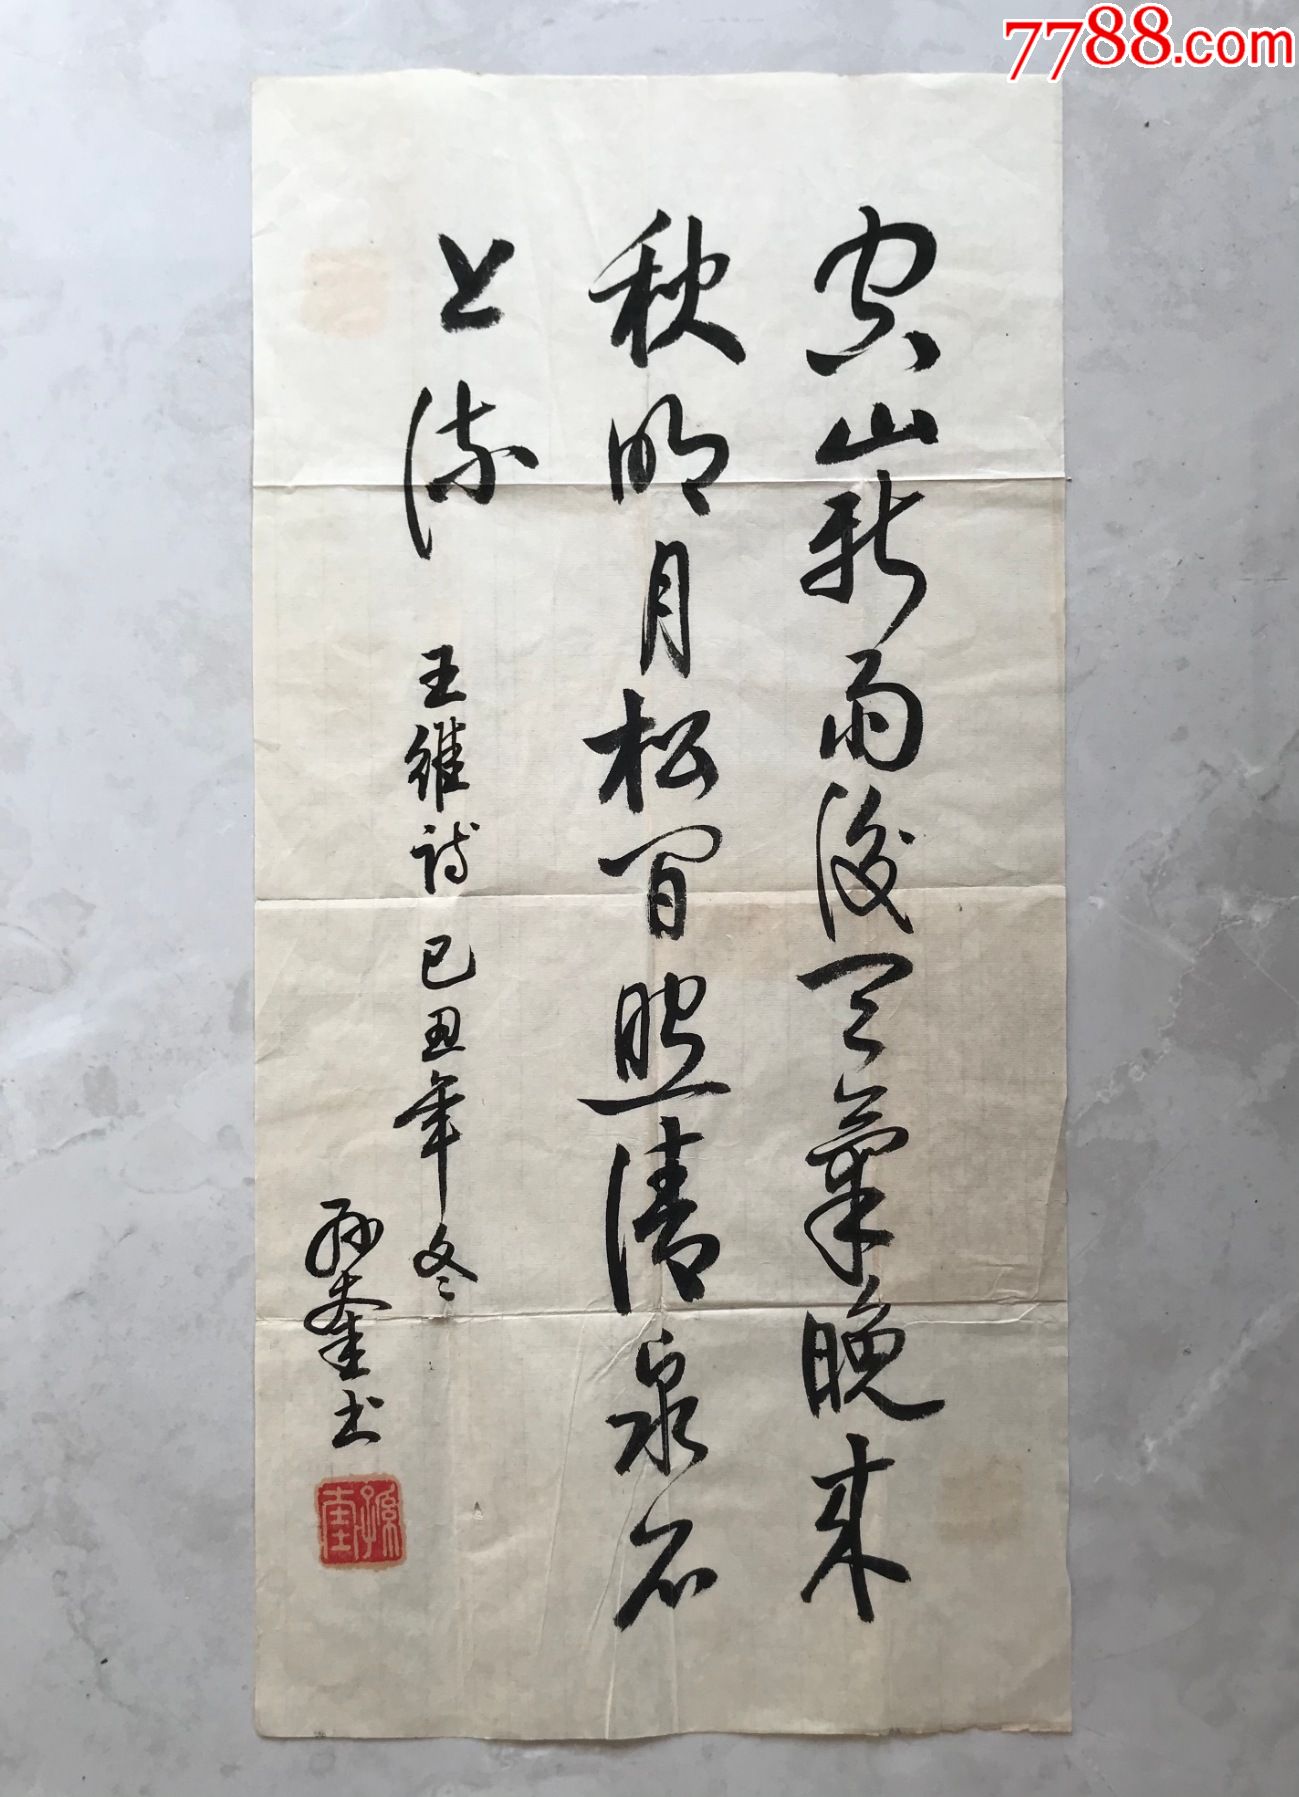 7788.com
空山新雨後天氣晚来
秋明月松间照清泉石
上流
王維诗己丑年冬
孙奎书
孫奎